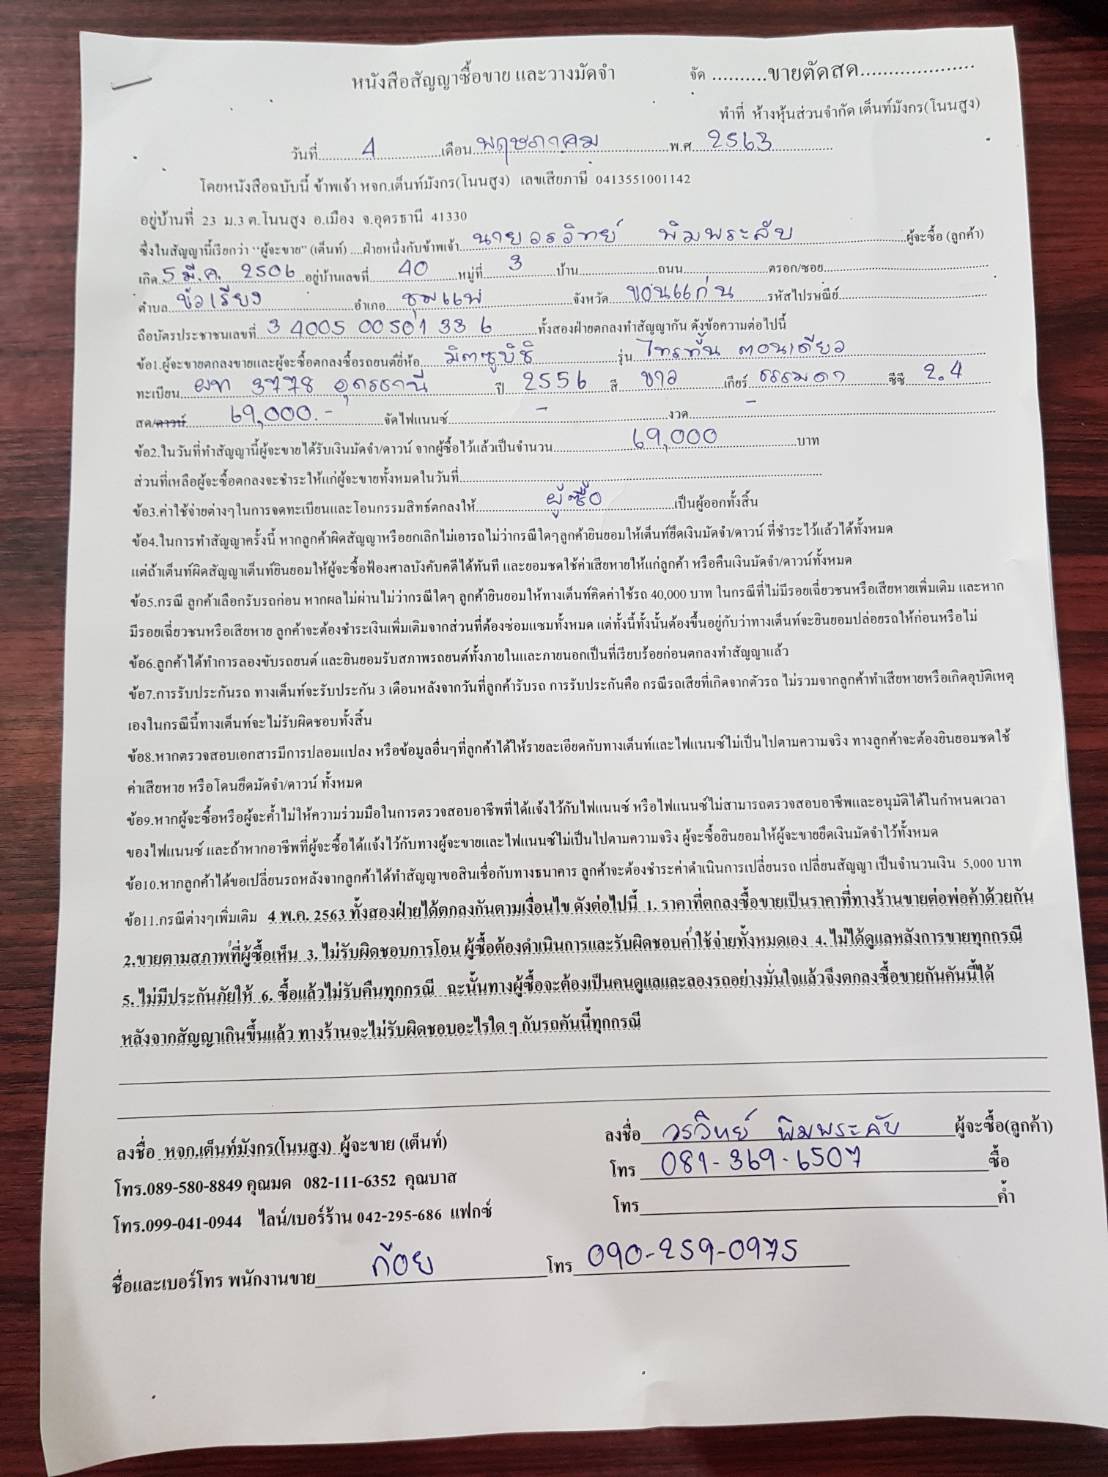 หนังสือสัญญาซื้อขาย และวางมัดจำ จัด ..........ขายตัดสด....................
ทำที่ ห้างหุ้นส่วนจำกัด เต็นท์มังกร(โนนสูง)
วันที่ 4 เดือน พฤษภาคม พ.ศ. 2563
โดยหนังสือฉบับนี้ ข้าพเจ้า หจก.เต็นท์มังกร(โนนสูง) เลขเสียภาษี 0413551001142
อยู่บ้านที่ 23 ม.3 ต.โนนสูง อ.เมือง จ.อุดรธานี 41330
ซึ่งในสัญญานี้เรียกว่า "ผู้จะขาย" (เต็นท์) ....ฝ่ายหนึ่งกับข้าพเจ้า นายวรวิทย์ พิมพระลับ ผู้จะซื้อ (ลูกค้า)
เกิด 5 มี.ค. 2506 อยู่บ้านเลขที่ 40 หมู่ที่ 3 บ้าน ถนน ตรอก/ซอย
ตำบล ขัวเรียง อำเภอ ชุมแพ จังหวัด ขอนแก่น รหัสไปรษณีย์
ถือบัตรประชาชนเลขที่ 3 4005 00501 33 6 ทั้งสองฝ่ายตกลงทำสัญญากัน ดังข้อความต่อไปนี้
ข้อ1.ผู้จะขายตกลงขายและผู้จะซื้อตกลงซื้อรถยนต์ยี่ห้อ มิตซูบิชิ รุ่น ไทรทัน ตอนเดียว
ทะเบียน 3778 อุดรธานี ปี 2556 สี ขาว เกียร์ ธรรมดา ซีซี 2.4
สด/ดาวน์ 69,000.- จัดไฟแนนซ์ - งวด -
ข้อ2.ในวันที่ทำสัญญานี้ผู้จะขายได้รับเงินมัดจำ/ดาวน์ จากผู้ซื้อไว้แล้วเป็นจำนวน 69,000 บาท
ส่วนที่เหลือผู้จะซื้อตกลงจะชำระให้แก่ผู้จะขายทั้งหมดในวันที่
ข้อ3.ค่าใช้จ่ายต่างๆในการจดทะเบียนและโอนกรรมสิทธิ์ตกลงให้ ผู้ซื้อ เป็นผู้ออกทั้งสิ้น
ข้อ4.ในการทำสัญญาครั้งนี้ หากลูกค้าผิดสัญญาหรือยกเลิกไม่เอารถไม่ว่ากรณีใดๆลูกค้ายินยอมให้เต็นท์ยึดเงินมัดจำ/ดาวน์ ที่ชำระไว้แล้วได้ทั้งหมด
แต่ถ้าเต็นท์ผิดสัญญาเต็นท์ยินยอมให้ผู้จะซื้อฟ้องศาลบังคับคดีได้ทันที และยอมชดใช้ค่าเสียหายให้แก่ลูกค้า หรือคืนเงินมัดจำ/ดาวน์ทั้งหมด
ข้อ5.กรณี ลูกค้าเลือกรับรถก่อน หากผลไม่ผ่านไม่ว่ากรณีใดๆ ลูกค้ายินยอมให้ทางเต็นท์คิดค่าใช้รถ 40,000 บาท ในกรณีที่ไม่มีรอยเฉี่ยวชนหรือเสียหายเพิ่มเติม และหาก
มีรอยเฉี่ยวชนหรือเสียหาย ลูกค้าจะต้องชำระเงินเพิ่มเติมจากส่วนที่ต้องซ่อมแซมทั้งหมด แต่ทั้งนี้ทั้งนั้นต้องขึ้นอยู่กับว่าทางเต็นท์จะยินยอมปล่อยรถให้ก่อนหรือไม่
ข้อ6.ลูกค้าได้ทำการลองขับรถยนต์ และยินยอมรับสภาพรถยนต์ทั้งภายในและภายนอกเป็นที่เรียบร้อยก่อนตกลงทำสัญญาแล้ว
ข้อ7.การรับประกันรถ ทางเต็นท์จะรับประกัน 3 เดือนหลังจากวันที่ลูกค้ารับรถ การรับประกันคือ กรณีรถเสียที่เกิดจากตัวรถ ไม่รวมจากลูกค้าทำเสียหายหรือเกิดอุบัติเหตุ
เองในกรณีนี้ทางเต็นท์จะไม่รับผิดชอบทั้งสิ้น
ข้อ8.หากตรวจสอบเอกสารมีการปลอมแปลง หรือข้อมูลอื่นๆที่ลูกค้าได้ให้รายละเอียดกับทางเต็นท์และไฟแนนซ์ไม่เป็นไปตามความจริง ทางลูกค้าจะต้องยินยอมชดใช้
ค่าเสียหาย หรือโดนยึดมัดจำ/ดาวน์ ทั้งหมด
ข้อ9.หากผู้จะซื้อหรือผู้จะค้ำไม่ให้ความร่วมมือในการตรวจสอบอาชีพที่ได้แจ้งไว้กับไฟแนนซ์ หรือไฟแนนซ์ไม่สามารถตรวจสอบอาชีพและอนุมัติได้ในกำหนดเวลา
ของไฟแนนซ์ และถ้าหากอาชีพที่ผู้จะซื้อได้แจ้งไว้กับทางผู้จะขายและไฟแนนซ์ไม่เป็นไปตามความจริง ผู้จะซื้อยินยอมให้ผู้จะขายยึดเงินมัดจำไว้ทั้งหมด
ข้อ10.หากลูกค้าได้ขอเปลี่ยนรถหลังจากลูกค้าได้ทำสัญญาขอสินเชื่อกับทางธนาคาร ลูกค้าจะต้องชำระค่าดำเนินการเปลี่ยนรถ เปลี่ยนสัญญา เป็นจำนวนเงิน 5,000 บาท
ข้อ11.กรณีต่างๆเพิ่มเติม 4 พ.ค. 2563 ทั้งสองฝ่ายได้ตกลงกันตามเงื่อนไข ดังต่อไปนี้ 1. ราคาที่ตกลงซื้อขายเป็นราคาที่ทางร้านขายต่อพ่อค้าด้วยกัน
2.ขายตามสภาพที่ผู้ซื้อเห็น 3. ไม่รับผิดชอบการโอน ผู้ซื้อต้องดำเนินการและรับผิดชอบค่าใช้จ่ายทั้งหมดเอง 4. ไม่ได้ดูแลหลังการขายทุกกรณี
5. ไม่มีประกันภัยให้ 6. ซื้อแล้วไม่รับคืนทุกกรณี ฉะนั้นทางผู้ซื้อจะต้องเป็นคนดูแลและลองรถอย่างมั่นใจแล้วจึงตกลงซื้อขายกันคันนี้ได้
หลังจากสัญญาเกินขึ้นแล้ว ทางร้านจะไม่รับผิดชอบอะไรใด ๆ กับรถคันนี้ทุกกรณี
ลงชื่อ หจก.เต็นท์มังกร(โนนสูง) ผู้จะขาย (เต็นท์) ลงชื่อ วรวิทย์ พิมพระลับ ผู้จะซื้อ(ลูกค้า)
โทร.089-580-8849 คุณมด 082-111-6352 คุณบาส โทร 081-369-6507 ซื้อ
โทร.099-041-0944 ไลน์/เบอร์ร้าน 042-295-686 แฟกซ์ โทร ค้ำ
ชื่อและเบอร์โทร พนักงานขาย ก้อย โทร 090-259-0975